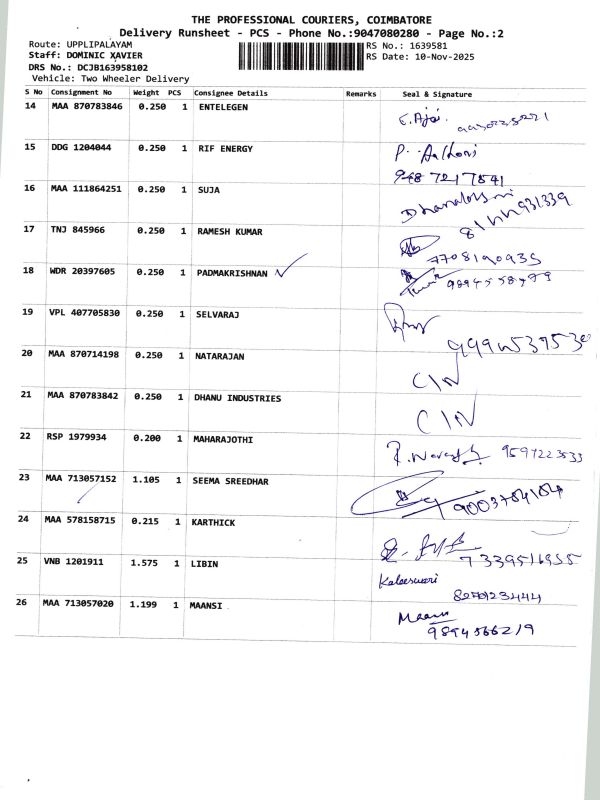 THE PROFESSIONAL COURIERS, COIMBATORE
Delivery Runsheet - PCS - Phone No.:9047080280 - Page No.:2
Route: UPPLIPALAYAM
Staff: DOMINIC XAVIER
DRS No.: DCJB163958102
Vehicle: Two Wheeler Delivery
RS No.: 1639581
RS Date: 10-Nov-2025
S No Consignment No Weight PCS Consignee Details Remarks Seal & Signature
14 MAA 870783846 0.250 1 ENTELEGEN
15 DDG 1204044 0.250 1 RIF ENERGY
948 7217841
16 MAA 111864251 0.250 1 SUJA Dhanalakshmi
17 TNJ 845966 0.250 1 RAMESH KUMAR
7708190935
18 WDR 20397605 0.250 1 PADMAKRISHNAN
19 VPL 407705830 0.250 1 SELVARAJ
20 MAA 870714198 0.250 1 NATARAJAN C/N
21 MAA 870783842 0.250 1 DHANU INDUSTRIES C/N
22 RSP 1979934 0.200 1 MAHARAJOTHI 9597223533
23 MAA 713057152 1.105 1 SEEMA SREEDHAR 9003784184
24 MAA 578158715 0.215 1 KARTHICK
7339516955
25 VNB 1201911 1.575 1 LIBIN Kaleeswari
26 MAA 713057020 1.199 1 MAANSI Maansi
9894566219